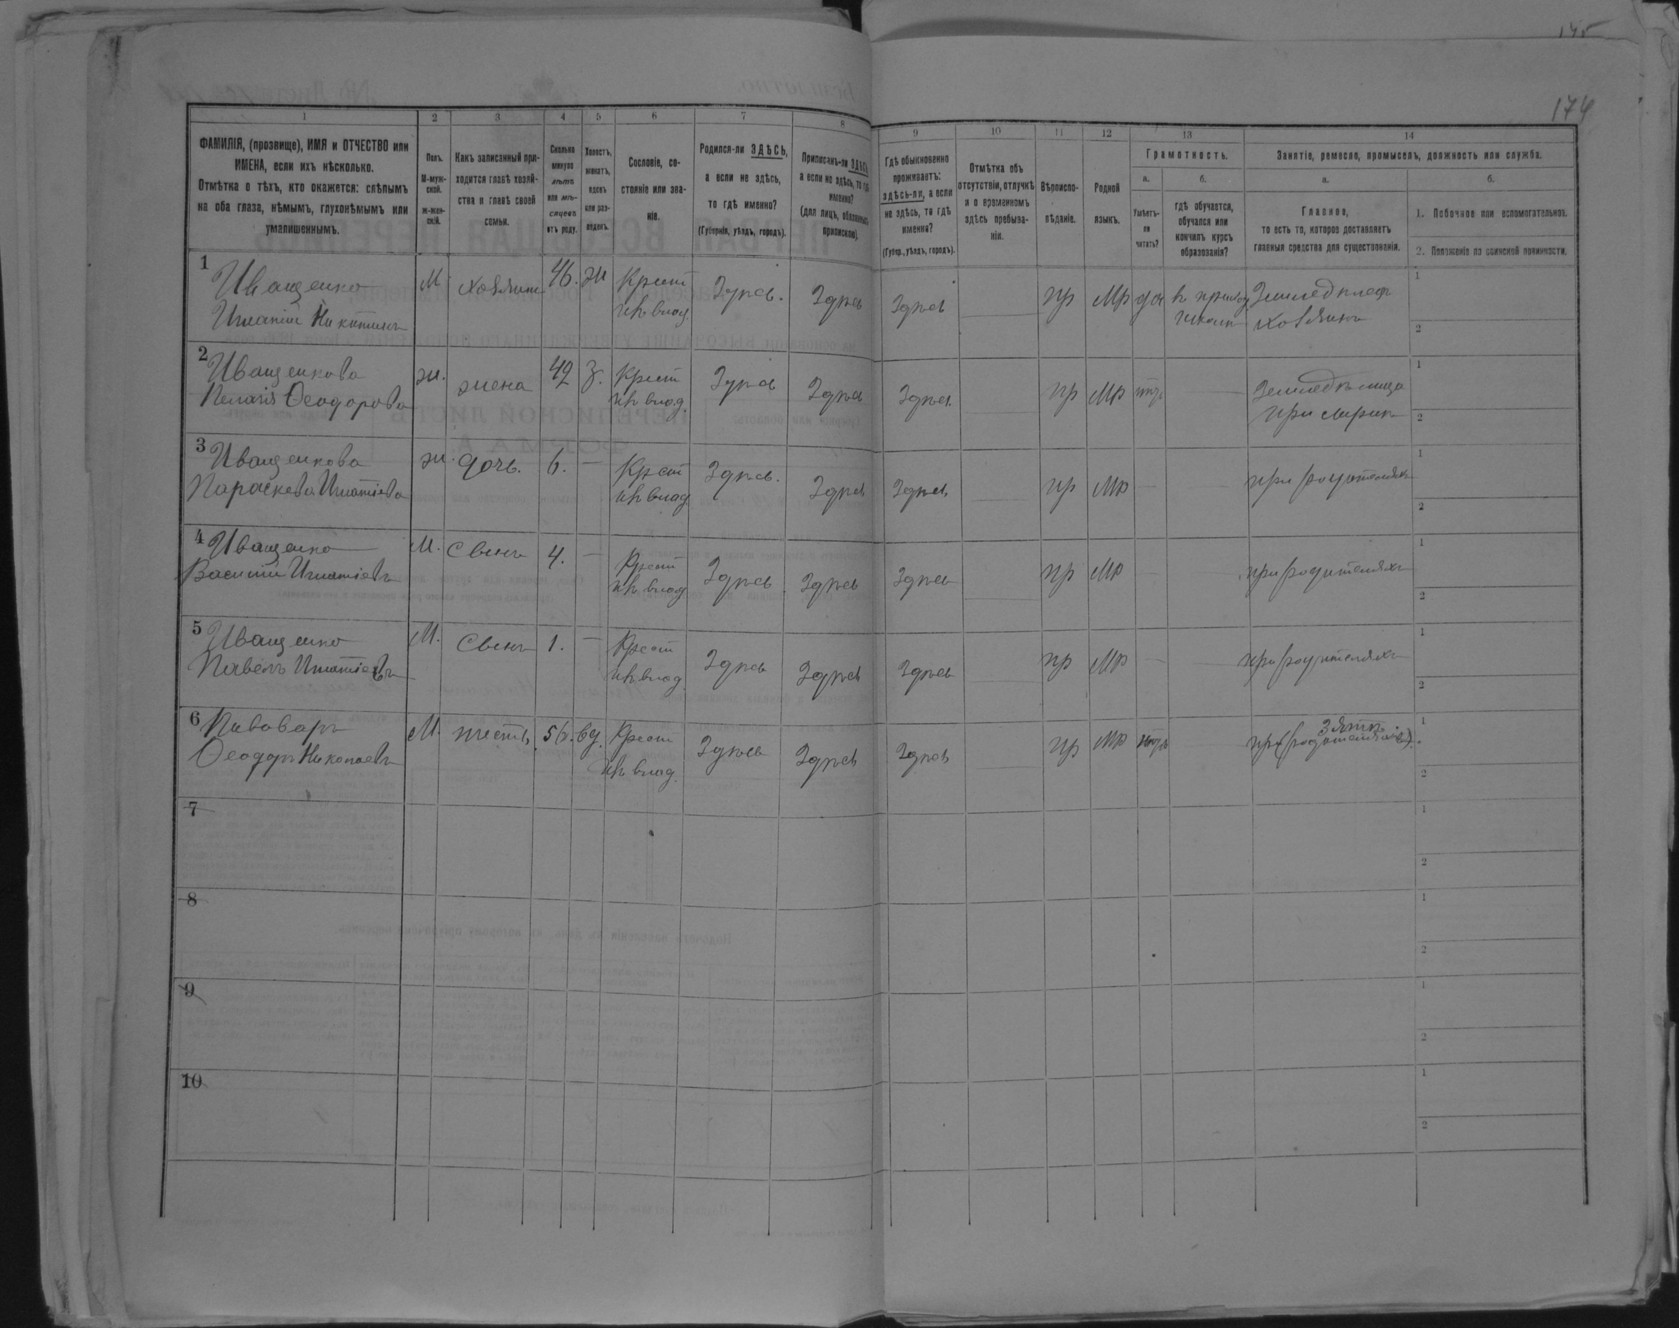 174
1 2 3 4 5 6 7 8 9 10 11 12 13 14
ФАМИЛІЯ, (прозвище), ИМЯ и ОТЧЕСТВО или
ИМЕНА, если ихъ нѣсколько.
Отмѣтка о тѣхъ, кто окажется: слѣпымъ
на оба глаза, нѣмымъ, глухонѣмымъ или
умалишеннымъ.
Полъ.
М-муж-
ской.
ж-жен-
скій.
Какъ записанный при-
ходится главѣ хозяй-
ства и главѣ своей
семьи.
Сколько
минуло
лѣтъ
или мѣ-
сяцевъ
отъ роду.
Холостъ,
женатъ,
вдовъ
или раз-
веденъ.
Сословіе, со-
стояніе или зва-
ніе.
Родился-ли ЗДѢСЬ,
а если не здѣсь,
то гдѣ именно?
(Губернія, уѣздъ, городъ).
Приписанъ-ли ЗДѢСЬ
а если не здѣсь, то гдѣ
именно?
(для лицъ, обязанныхъ
припискою).
Гдѣ обыкновенно
проживаетъ:
здѣсь-ли, а если
не здѣсь, то гдѣ
именно?
(Губер., уѣздъ, городъ).
Отмѣтка объ
отсутствіи, отлучкѣ
и о временномъ
здѣсь пребыва-
ніи.
Вѣроиспо-
вѣданіе.
Родной
языкъ.
Грамотность.
а. б.
Умѣетъ-
ли
читать?
гдѣ обучается,
обучался или
кончилъ курсъ
образованія?
Занятіе, ремесло, промыселъ, должность или служба.
а. б.
Главное,
то есть то, которое доставляетъ
главныя средства для существованія.
1. Побочное или вспомогательное.
2. Положеніе по воинской повинности.
1 Иващенко М хозяинъ 46. ж Крест Здѣсь. Здѣсь Здѣсь пр Мр да Земледѣлецъ 1
Игнатій Никитинъ изъ влад. школѣ хозяинъ 2
2 Иващенкова ж. жена 42 з. Крест Здѣсь Здѣсь Здѣсь пр Мр нтъ Земледѣлица 1
Пелагія Ѳеодорова изъ влад. при мужѣ 2
3 Иващенкова ж. дочь. 6. — Крест Здѣсь. Здѣсь Здѣсь пр Мр — при родителяхъ 1
Параскева Игнатіева изъ влад 2
4 Иващенко М. Сынъ 4. — Крест Здѣсь Здѣсь Здѣсь пр Мр — при родителяхъ 1
Василій Игнатіевъ изъ влад. 2
5 Иващенко М. Сынъ 1. — Крест Здѣсь Здѣсь Здѣсь пр Мр — при родителяхъ 1
Павелъ Игнатіевъ изъ влад. 2
6 Пивоваръ М. тесть 56. вд. Крест Здѣсь Здѣсь Здѣсь пр Мр при зятѣ 1
Ѳеодоръ Николаевъ изъ влад. 2
7 1
2
8 1
2
9 1
2
10 1
2